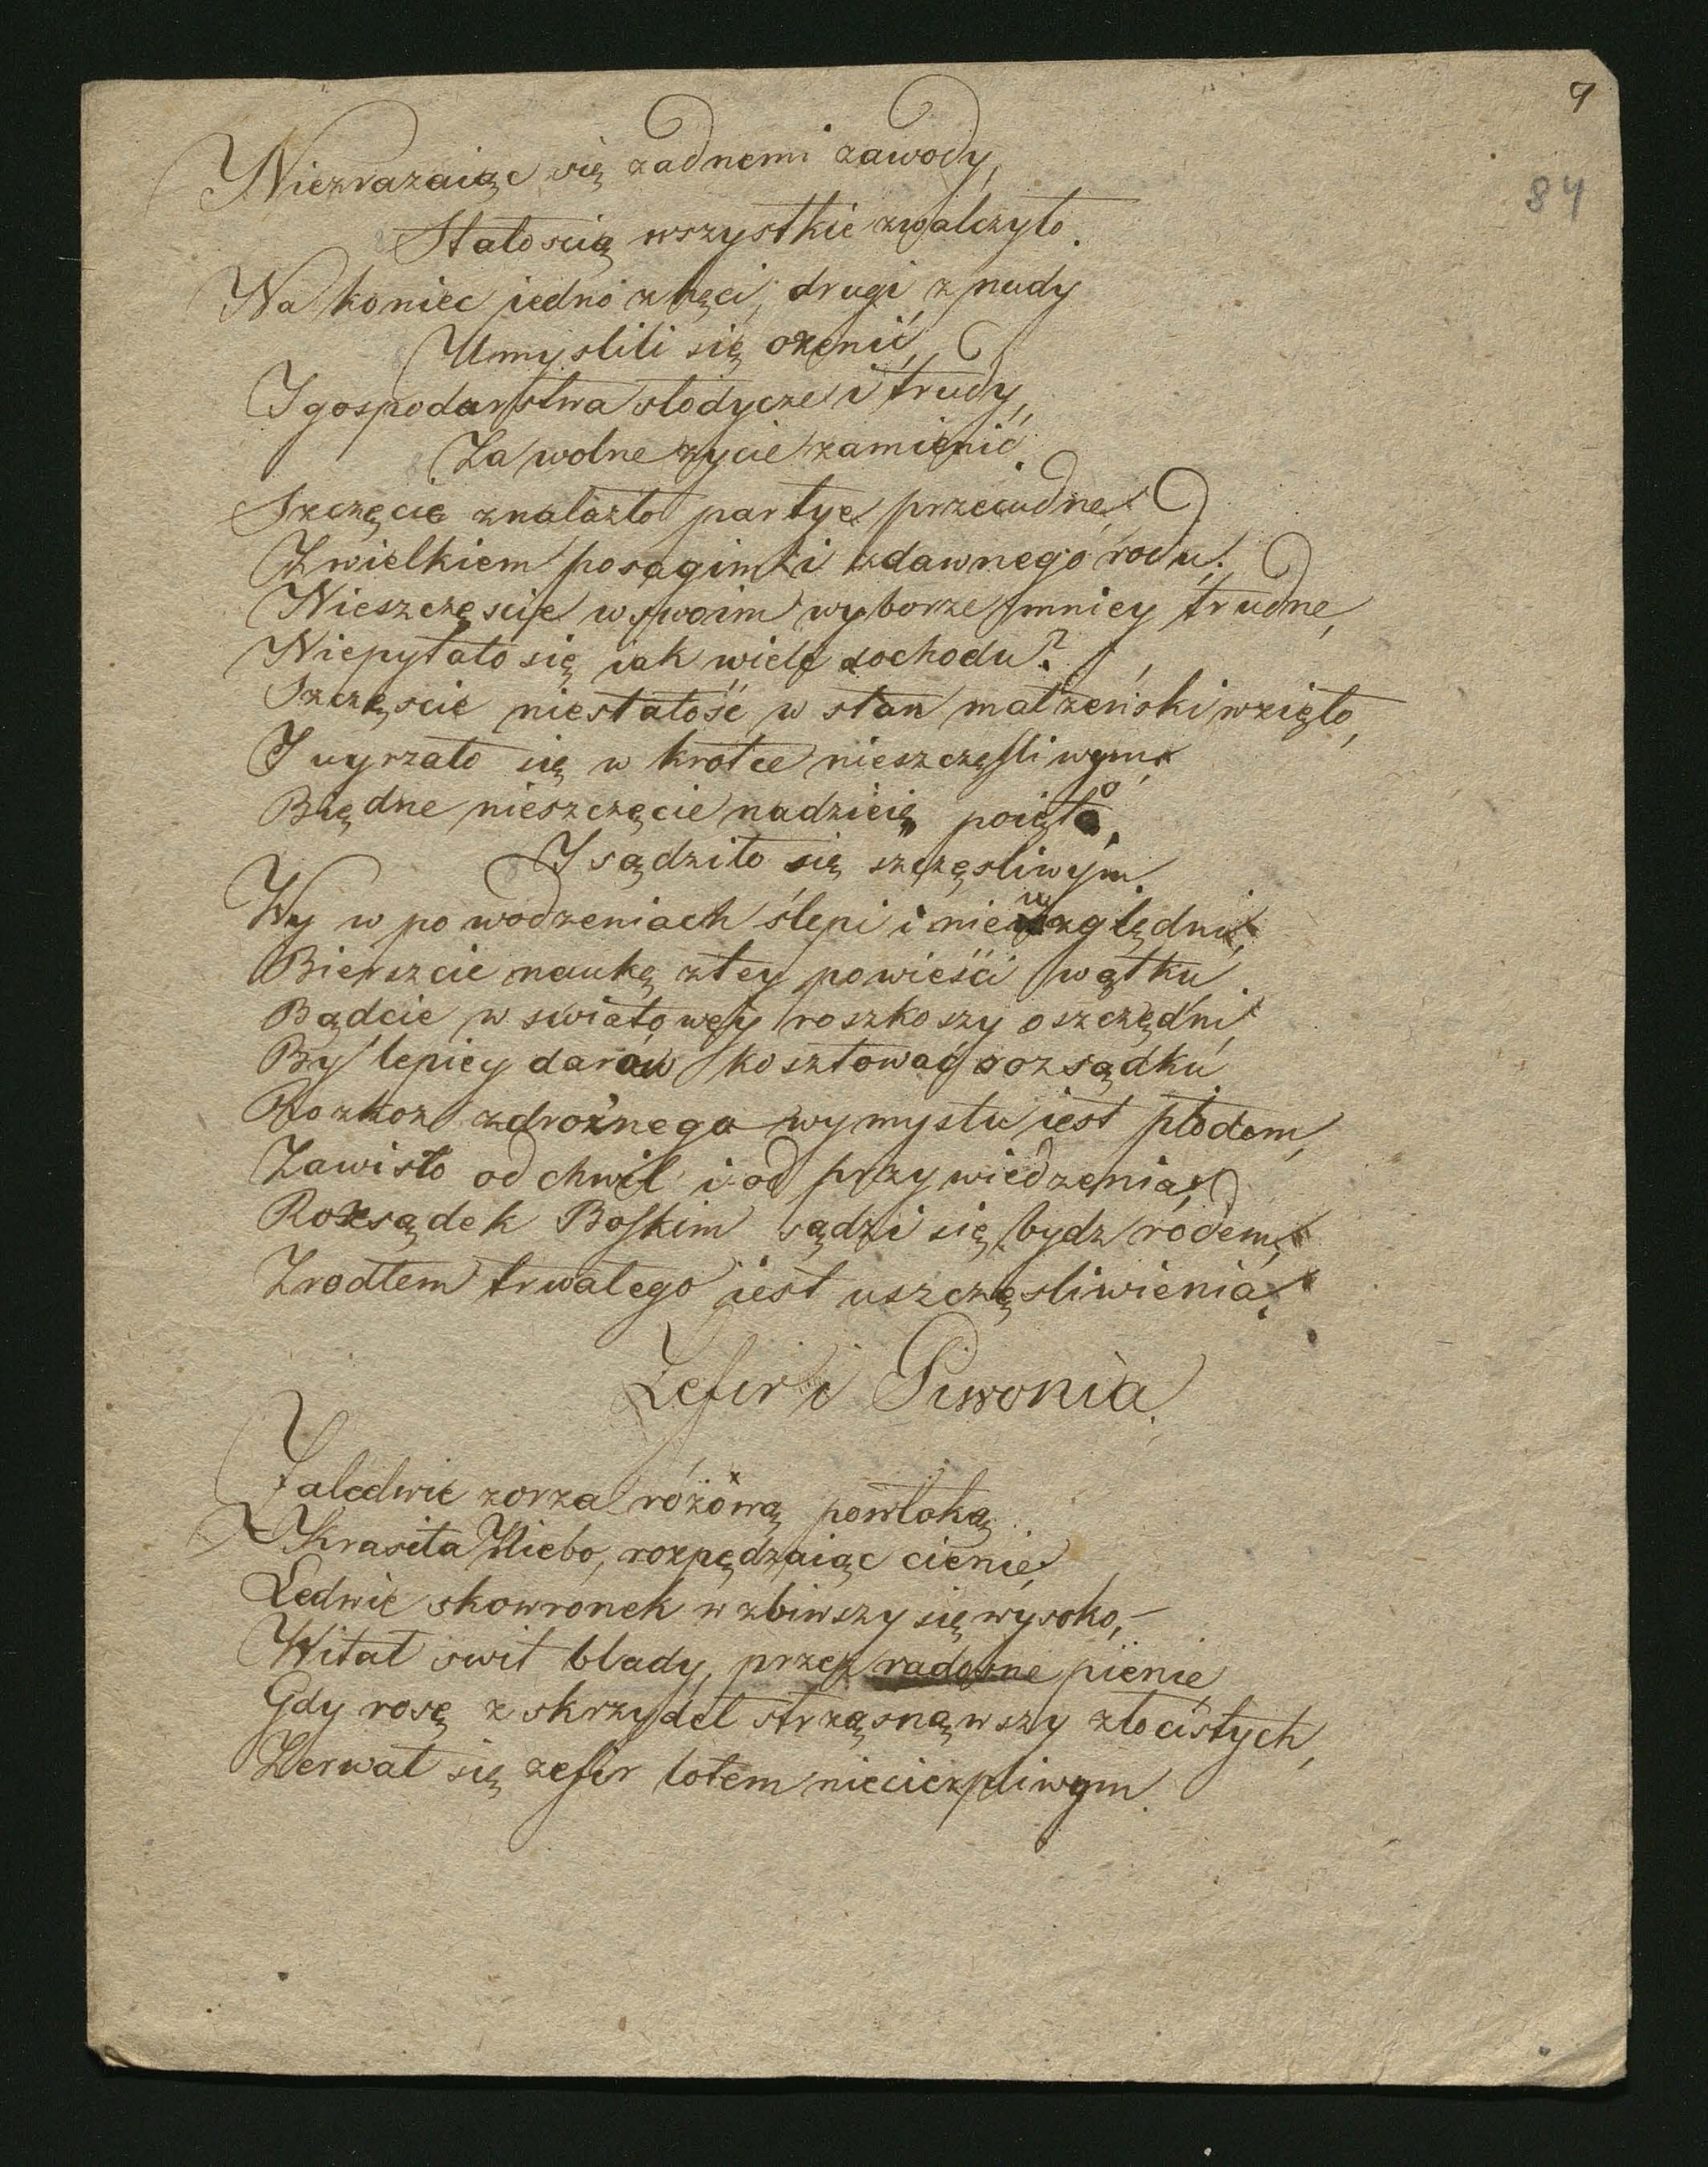 9
84
Niezrazaiąc się zadnemi zawody,
Stałoscią wszystkie zwalczyło.
Na koniec jedno z hęci, drugi z nudy
Umyslili się ozenić,
I gospodarstwa słodycze i trudy,
Za wolne zycie zamienić.
Szczęcie znalazło partye przecudne
Z wielkiem posagim i z dawnego rodu.
Nieszczęscie w swoim wyborze mniey trudne,
Niepytało się iak wiele dochodu?
Szczęscie niestałość w stan małżeński wzięło,
I uyrzało się w krotce nieszczęsliwym
Biędne nieszczęcie nadzieię poięło,
I sądziło się szczęsliwym.
Wy w powodzeniach ślepi i niewzględni,
Bierzcie naukę z tey powieści wątku
Bądcie w swiatowey roszkoszy oszczędni,
By lepiey darów kosztować rozsądku
Rozkoz zdrożnego wymysłu iest płodem,
Zawisło od chwil i od przywiedzenia;
Rozsądek Boskim sądzi się bydz rodem,
Zrodłem trwałego iest uszczęsliwienia.
Zefir i Piwonia.
Zaledwie zorza różową powłoką
Krasiła Niebo, rozpędzaiąc cienie,
Ledwie skowronek wzbiwszy się wysoko,
Witał swit blady, przez radosne pienie,
Gdy rosę z skrzydeł strząsnąwszy złocistych,
Zerwał się zefir lotem niecierpliwym.